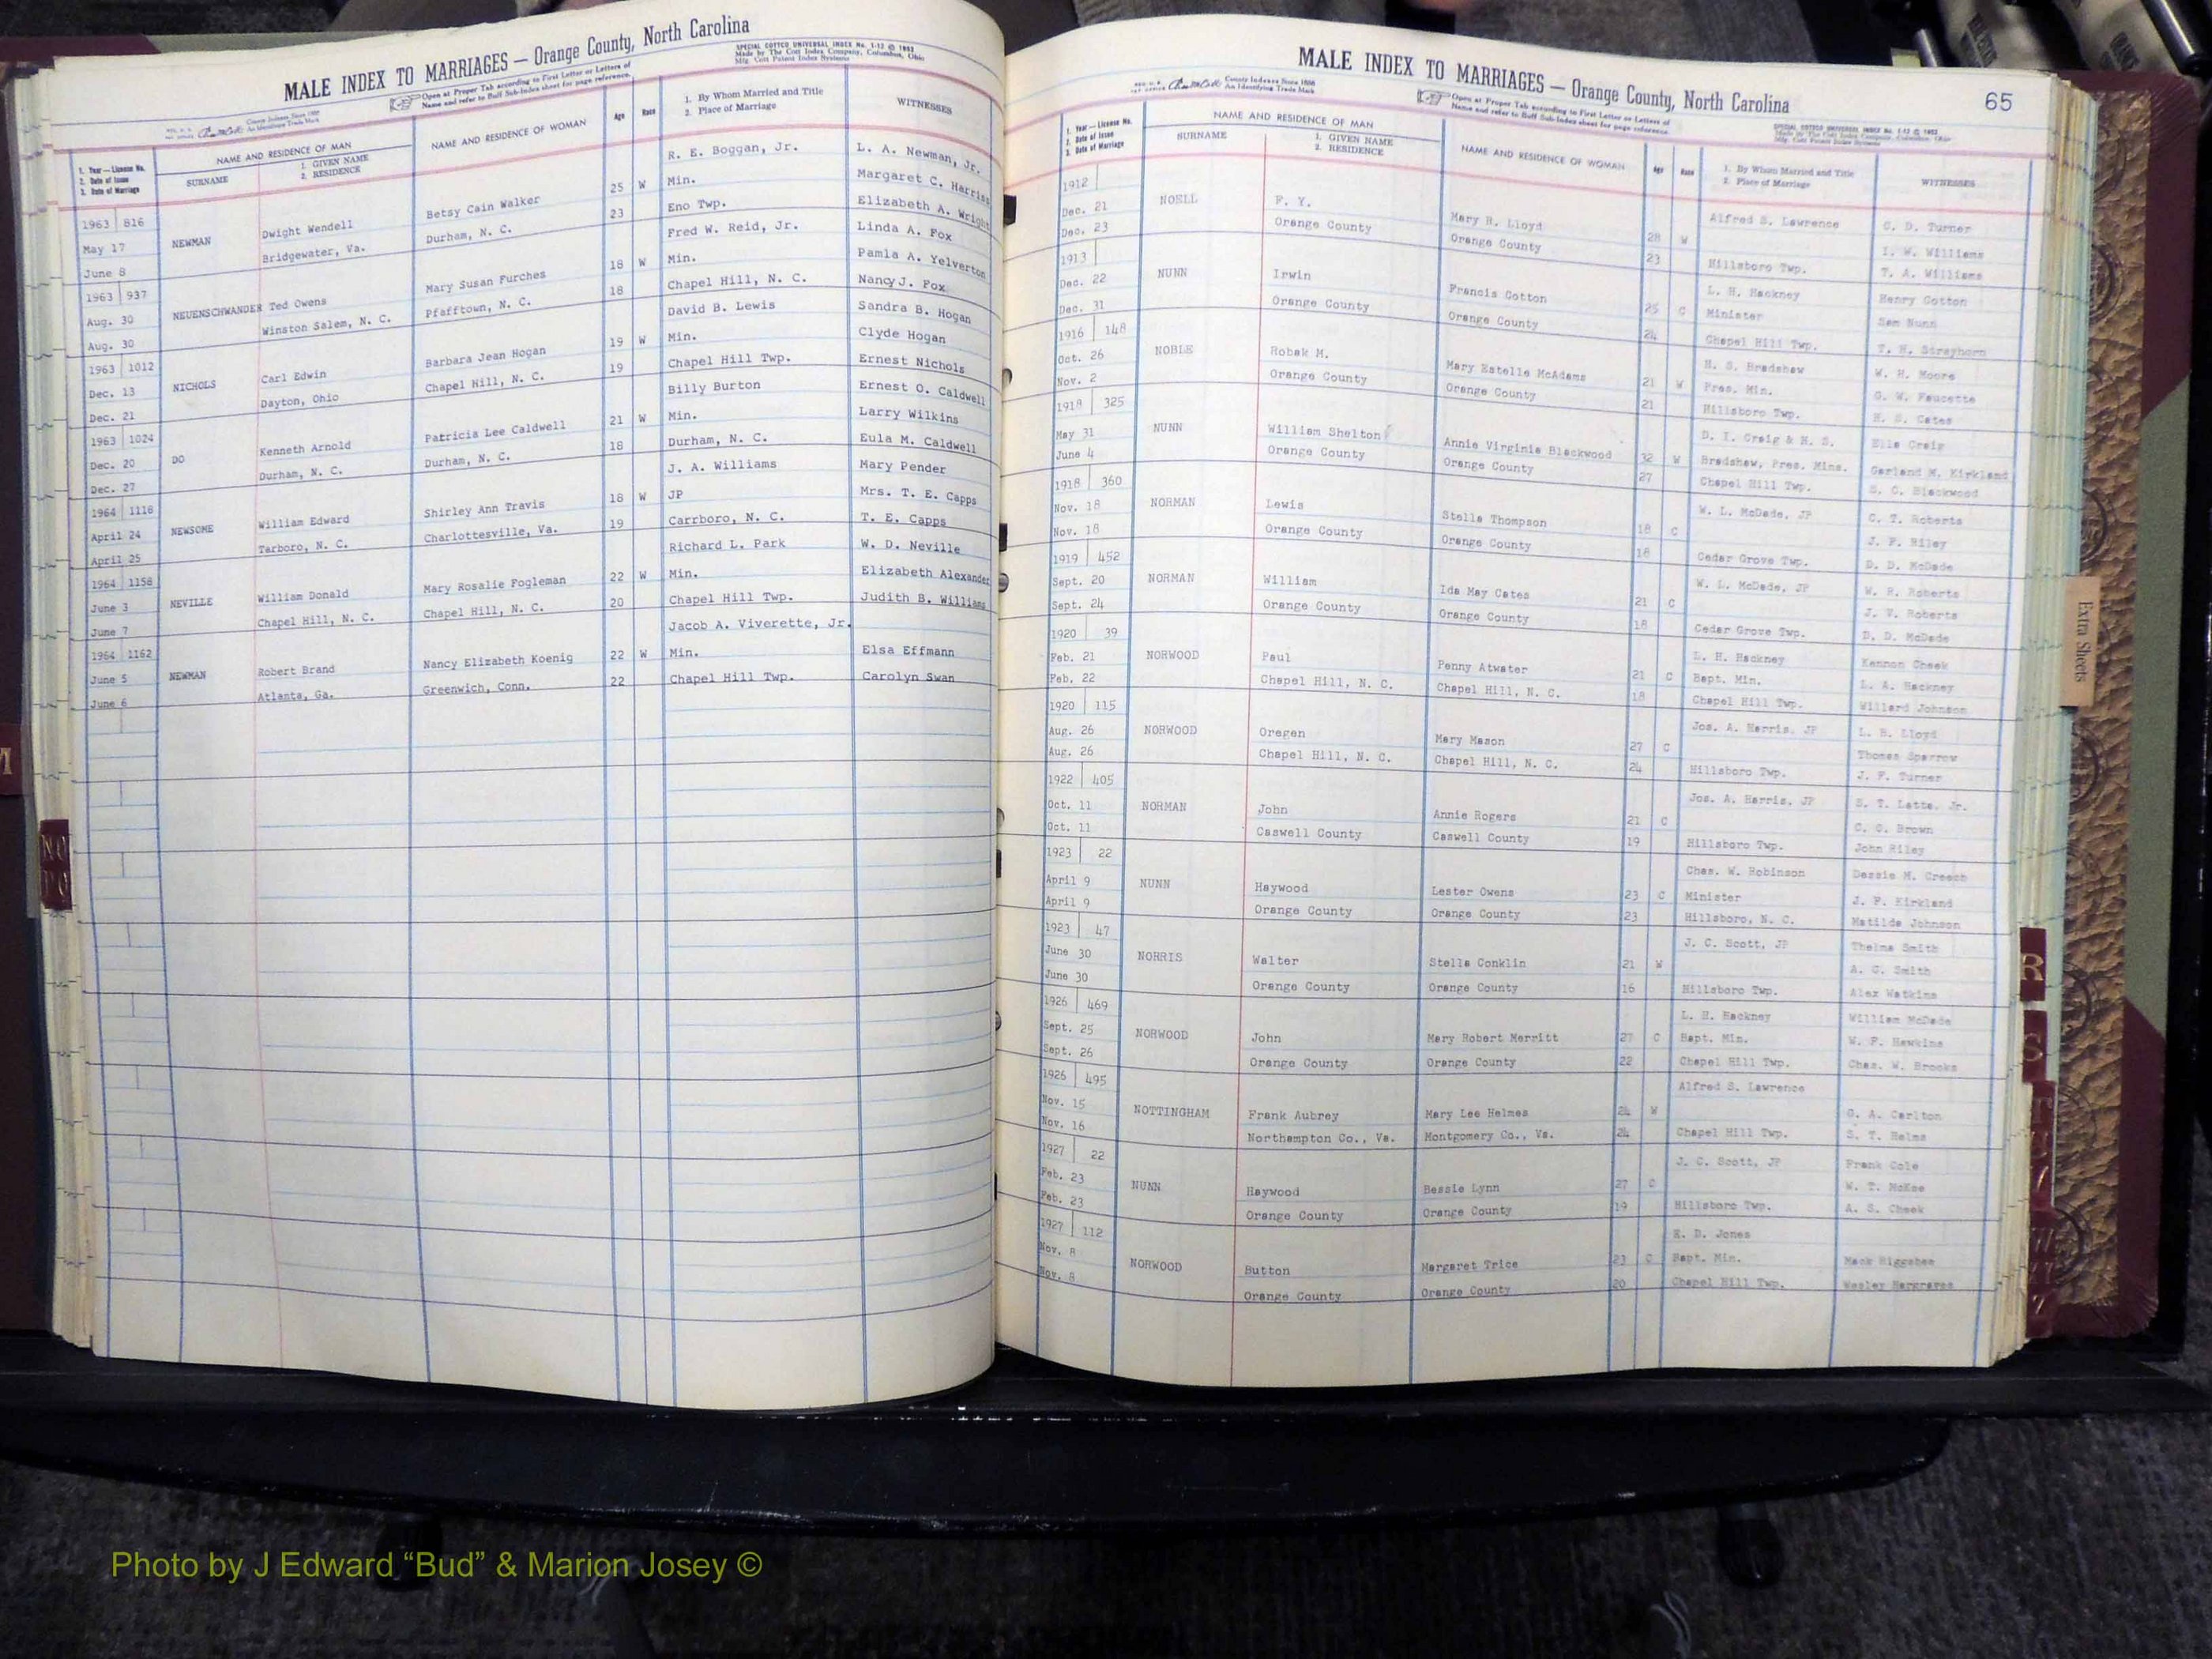 MALE INDEX TO MARRIAGES — Orange County, North Carolina
SPECIAL COTTCO UNIVERSAL INDEX No. 1-12 © 1953
Made by The Cott Index Company, Columbus, Ohio
Mfg. Cott Patent Index Systems
Open at Proper Tab according to First Letter or Letters of
Name and refer to Buff Sub-Index sheet for page reference.
County Indexes Since 1888
An Identifying Trade Mark
1. Year — License No.
2. Date of Issue
3. Date of Marriage
NAME AND RESIDENCE OF MAN
SURNAME
1. GIVEN NAME
2. RESIDENCE
NAME AND RESIDENCE OF WOMAN
Age
Race
1. By Whom Married and Title
2. Place of Marriage
WITNESSES
R. E. Boggan, Jr. L. A. Newman, Jr.
1963 816 Betsy Cain Walker 25 W Min. Margaret C. Harriss
May 17 NEWMAN Dwight Wendell Durham, N. C. 23 Eno Twp. Elizabeth A. Wright
June 8 Bridgewater, Va.
Fred W. Reid, Jr. Linda A. Fox
1963 937 Mary Susan Furches 18 W Min. Pamla A. Yelverton
Aug. 30 NEUENSCHWANDER Ted Owens Pfafftown, N. C. 18 Chapel Hill, N. C. Nancy J. Fox
Aug. 30 Winston Salem, N. C.
David B. Lewis Sandra B. Hogan
1963 1012 Barbara Jean Hogan 19 W Min. Clyde Hogan
Dec. 13 NICHOLS Carl Edwin Chapel Hill, N. C. 19 Chapel Hill Twp. Ernest Nichols
Dec. 21 Dayton, Ohio
Billy Burton Ernest O. Caldwell
1963 1024 Patricia Lee Caldwell 21 W Min. Larry Wilkins
Dec. 20 DO Kenneth Arnold Durham, N. C. 18 Durham, N. C. Eula M. Caldwell
Dec. 27 Durham, N. C.
J. A. Williams Mary Pender
1964 1116 Shirley Ann Travis 18 W JP Mrs. T. E. Capps
April 24 NEWSOME William Edward Charlottesville, Va. 19 Carrboro, N. C. T. E. Capps
April 25 Tarboro, N. C.
Richard L. Park W. D. Neville
1964 1158 Mary Rosalie Fogleman 22 W Min. Elizabeth Alexander
June 3 NEVILLE William Donald Chapel Hill, N. C. 20 Chapel Hill Twp. Judith B. Williams
June 7 Chapel Hill, N. C.
Jacob A. Viverette, Jr.
1964 1162 Nancy Elizabeth Koenig 22 W Min. Elsa Effmann
June 5 NEWMAN Robert Brand Greenwich, Conn. 22 Chapel Hill Twp. Carolyn Swan
June 6 Atlanta, Ga.
MALE INDEX TO MARRIAGES — Orange County, North Carolina
65
County Indexes Since 1888
An Identifying Trade Mark
Open at Proper Tab according to First Letter or Letters of
Name and refer to Buff Sub-Index sheet for page reference
SPECIAL COTTCO UNIVERSAL INDEX No. 1-12 © 1953
1. Year — License No.
2. Date of Issue
3. Date of Marriage
NAME AND RESIDENCE OF MAN
SURNAME
1. GIVEN NAME
2. RESIDENCE
NAME AND RESIDENCE OF WOMAN
Age
Race
1. By Whom Married and Title
2. Place of Marriage
WITNESSES
1912 Alfred S. Lawrence C. D. Turner
Dec. 21 NOELL F. Y. Mary R. Lloyd 28 W I. W. Williams
Dec. 23 Orange County Orange County 23 Hillsboro Twp. T. A. Williams
1913 L. H. Hackney Henry Cotton
Dec. 22 NUNN Irwin Francis Cotton 25 C Minister Sam Nunn
Dec. 31 Orange County Orange County 24 Chapel Hill Twp. T. H. Strayhorn
1916 148 H. S. Bradshaw W. H. Moore
Oct. 26 NOBLE Robak M. Mary Estelle McAdams 21 W Pres. Min. G. W. Faucette
Nov. 2 Orange County Orange County 21 Hillsboro Twp. H. S. Cates
1918 325 D. I. Craig & H. S. Ella Craig
May 31 NUNN William Shelton Annie Virginia Blackwood 32 W Bradshaw, Pres. Mins. Garland M. Kirkland
June 4 Orange County Orange County 27 Chapel Hill Twp. S. C. Blackwood
1918 360 W. L. McDade, JP C. T. Roberts
Nov. 18 NORMAN Lewis Stella Thompson 18 C J. F. Riley
Nov. 18 Orange County Orange County 18 Cedar Grove Twp. D. D. McDade
1919 452 W. L. McDade, JP W. R. Roberts
Sept. 20 NORMAN William Ida May Cates 21 C J. V. Roberts
Sept. 24 Orange County Orange County 18 Cedar Grove Twp. D. D. McDade
1920 39 L. H. Hackney Kennon Cheek
Feb. 21 NORWOOD Paul Penny Atwater 21 C Bapt. Min. L. A. Hackney
Feb. 22 Chapel Hill, N. C. Chapel Hill, N. C. 18 Chapel Hill Twp. Willard Johnson
1920 115 Jos. A. Harris, JP L. B. Lloyd
Aug. 26 NORWOOD Oregen Mary Mason 27 C Thomas Sparrow
Aug. 26 Chapel Hill, N. C. Chapel Hill, N. C. 24 Hillsboro Twp. J. F. Turner
1922 405 Jos. A. Harris, JP S. T. Latta, Jr.
Oct. 11 NORMAN John Annie Rogers 21 C C. C. Brown
Oct. 11 Caswell County Caswell County 19 Hillsboro Twp. John Riley
1923 22 Chas. W. Robinson Dessie M. Creech
April 9 NUNN Haywood Lester Owens 23 C Minister J. F. Kirkland
April 9 Orange County Orange County 23 Hillsboro, N. C. Matilda Johnson
1923 47 J. C. Scott, JP Thelma Smith
June 30 NORRIS Walter Stella Conklin 21 W A. C. Smith
June 30 Orange County Orange County 16 Hillsboro Twp. Alex Watkins
1926 469 L. H. Hackney William McDade
Sept. 25 NORWOOD John Mary Robert Merritt 27 C Bapt. Min. W. F. Hawkins
Sept. 26 Orange County Orange County 22 Chapel Hill Twp. Chas. W. Brooks
1926 495 Alfred S. Lawrence
Nov. 15 NOTTINGHAM Frank Aubrey Mary Lee Helmes 24 W G. A. Carlton
Nov. 16 Northampton Co., Va. Montgomery Co., Va. 24 Chapel Hill Twp. S. T. Helms
1927 22 J. C. Scott, JP Frank Cole
Feb. 23 NUNN Haywood Bessie Lynn 27 C W. T. McKee
Feb. 23 Orange County Orange County 19 Hillsboro Twp. A. S. Cheek
1927 112 H. D. Jones
Nov. 8 NORWOOD Button Margaret Trice 23 C Bapt. Min. Mack Riggsbee
Nov. 8 Orange County Orange County 20 Chapel Hill Twp. Wesley Hargraves
Extra Sheets
R
S
Photo by J Edward “Bud” & Marion Josey ©